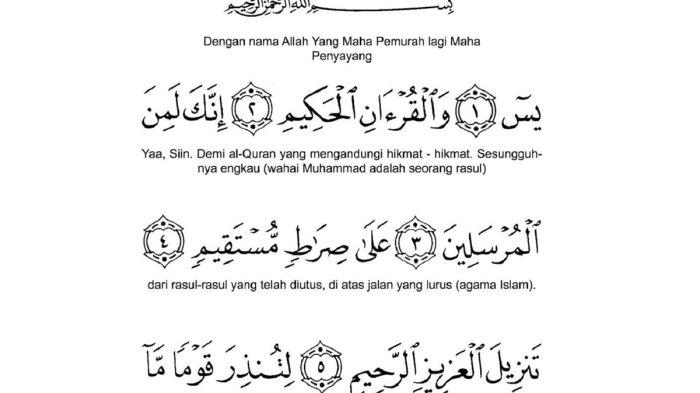 بِسْمِ اللَّهِ الرَّحْمَٰنِ الرَّحِيمِ
Dengan nama Allah Yang Maha Pemurah lagi Maha
Penyayang
يسٓ ١ وَٱلْقُرْءَانِ ٱلْحَكِيمِ ٢ إِنَّكَ لَمِنَ
Yaa, Siin. Demi al-Quran yang mengandungi hikmat - hikmat. Sesungguh-
nya engkau (wahai Muhammad adalah seorang rasul)
ٱلْمُرْسَلِينَ ٣ عَلَىٰ صِرَٰطٍ مُّسْتَقِيمٍ ٤
dari rasul-rasul yang telah diutus, di atas jalan yang lurus (agama Islam).
تَنزِيلَ ٱلْعَزِيزِ ٱلرَّحِيمِ ٥ لِتُنذِرَ قَوْمًا مَّآ